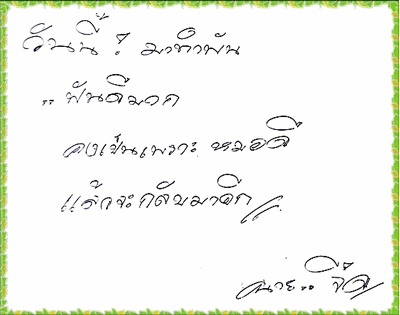 วันนี้! มาทำฟัน
.. ฟันดีมาก
คงเป็นเพราะ หมอดี
แล้วจะกลับมาอีก //
นาย..